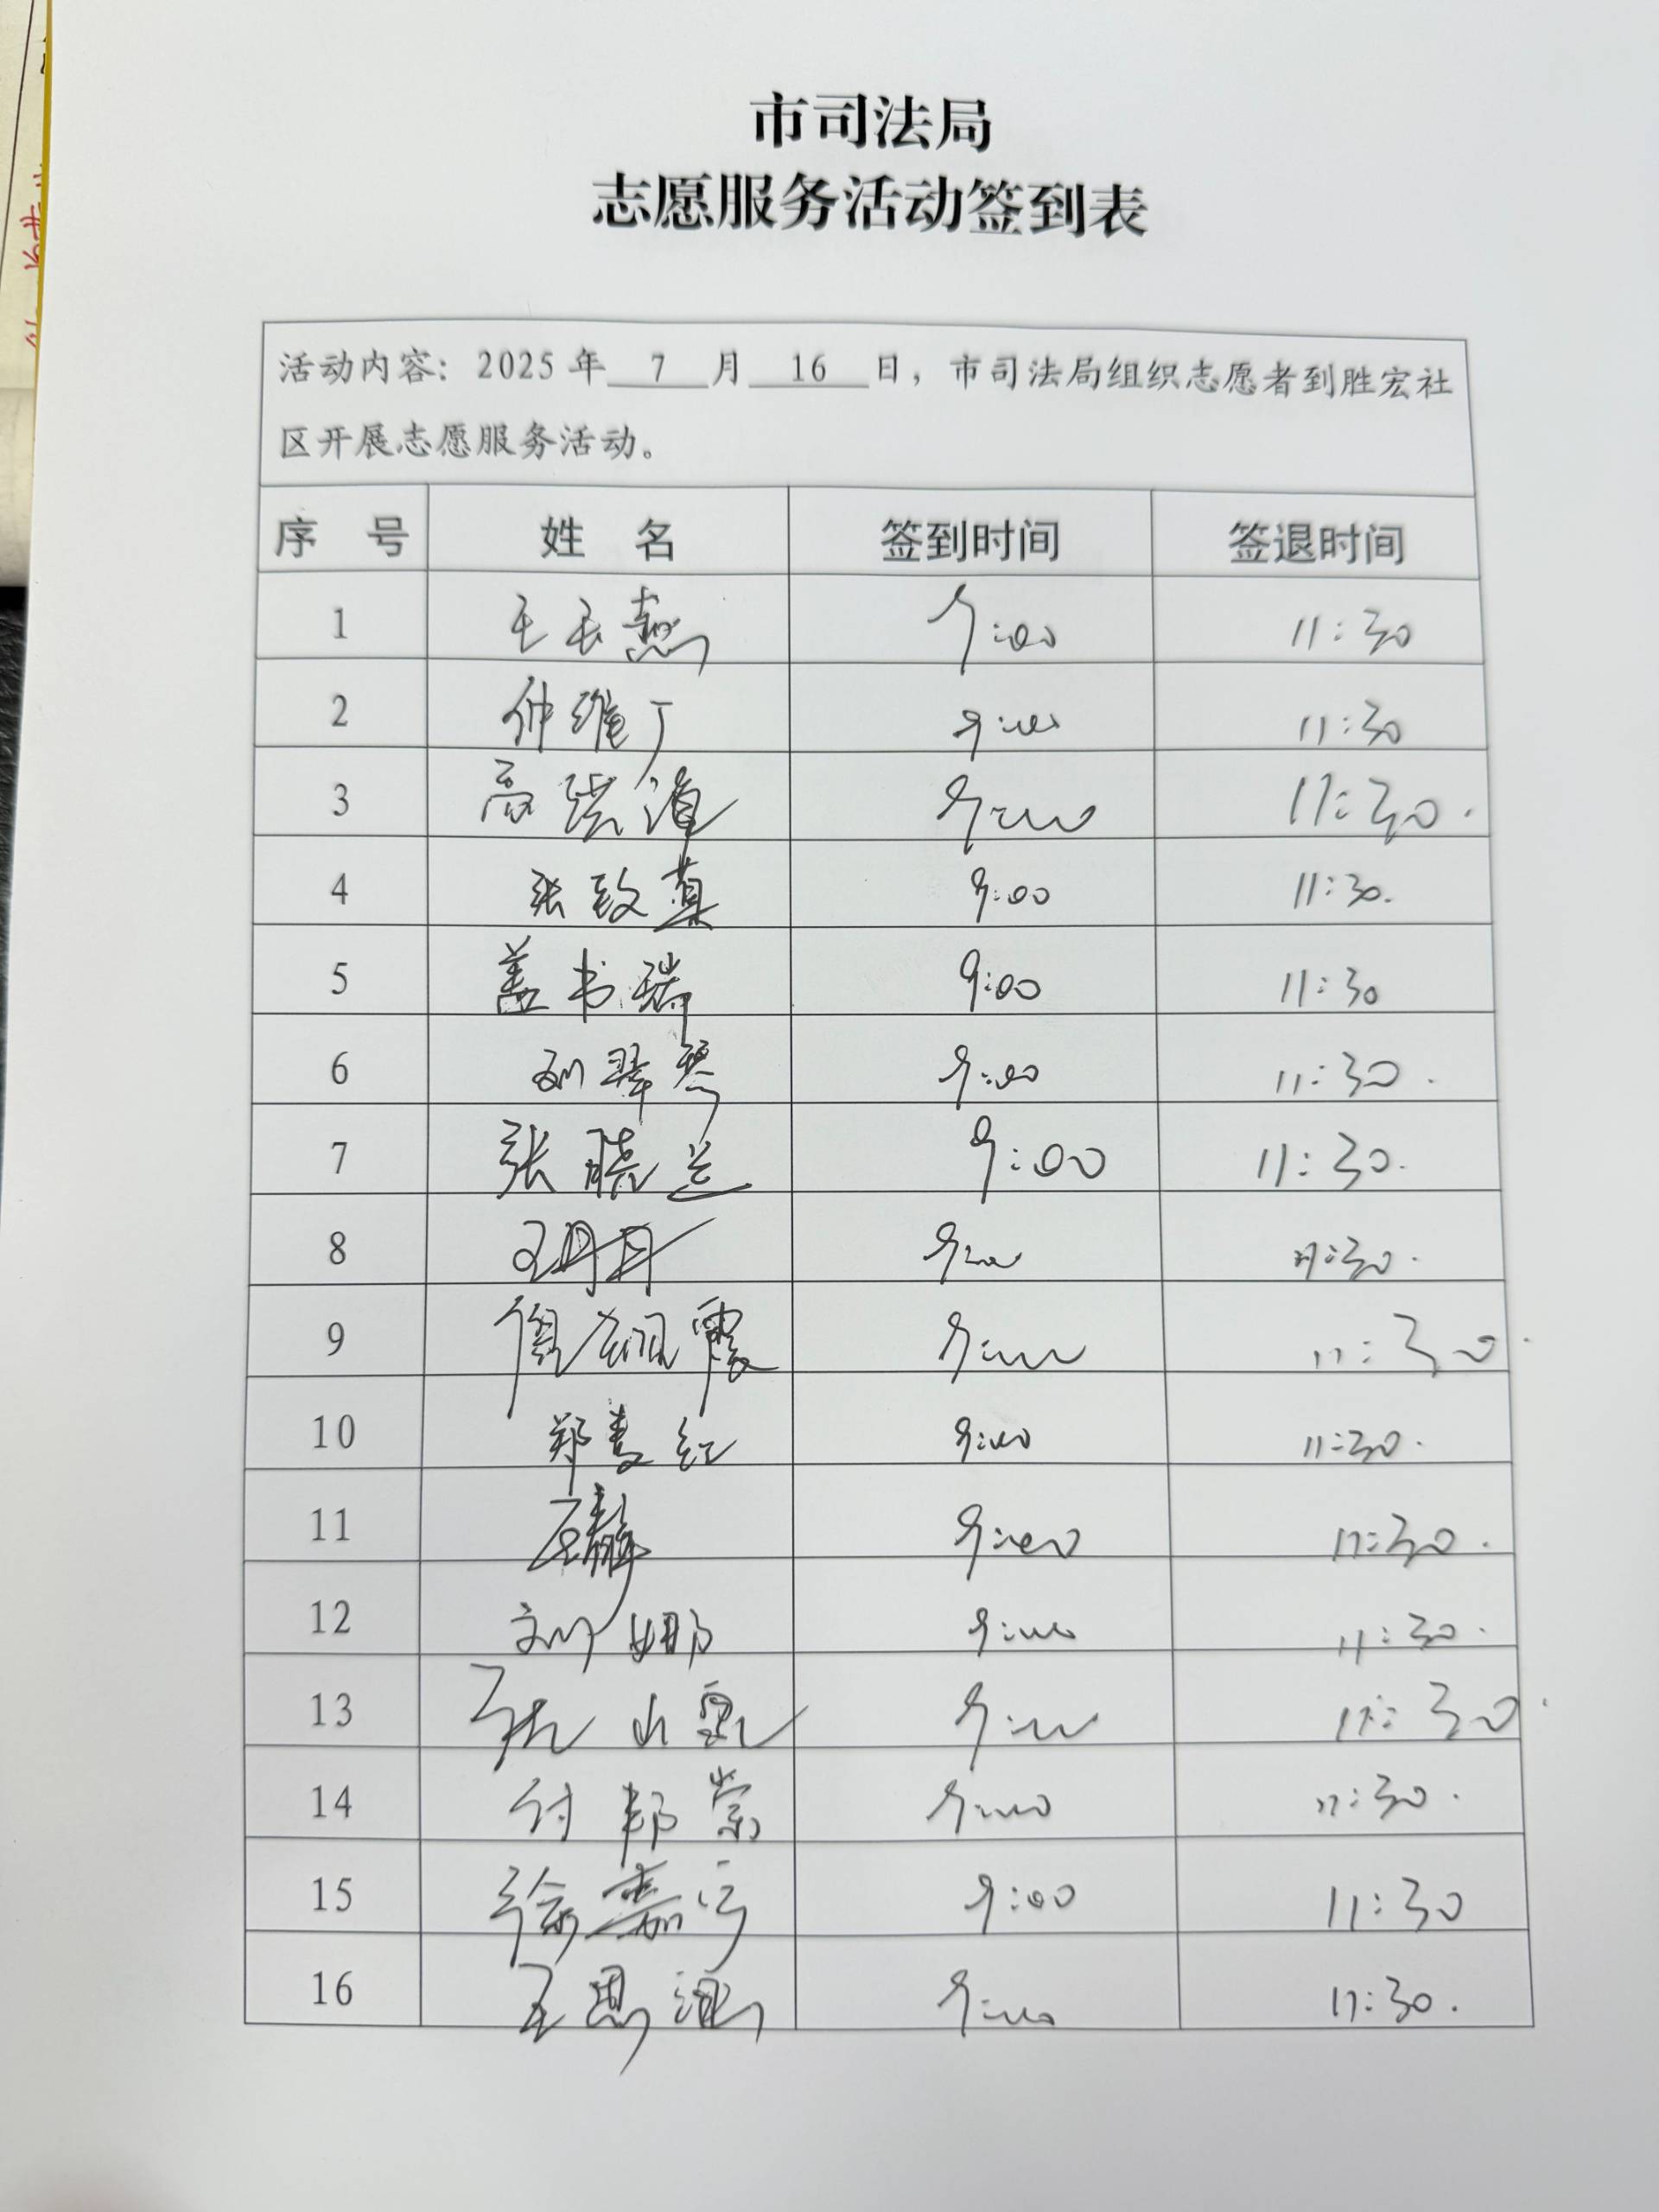 市司法局
志愿服务活动签到表
活动内容：2025 年 7 月 16 日，市司法局组织志愿者到胜宏社
区开展志愿服务活动。
序 号 姓 名 签到时间 签退时间
1 王玉燕 9:00 11:30
2 仲维丁 9:00 11:30
3 高洪道 9:00 11:30.
4 张致真 9:00 11:30.
5 盖书瑞 9:00 11:30
6 刘翠琴 9:00 11:30.
7 张晓兰 9:00 11:30.
8 王丹丹 9:00 11:30.
9 9:00 11:30.
10 郑爱红 9:00 11:30.
11 石静 9:00 11:30.
12 刘娜 9:00 11:30.
13 张山 9:00 11:30.
14 付邦崇 9:00 11:30.
15 徐嘉 9:00 11:30
16 王思 9:00 11:30.